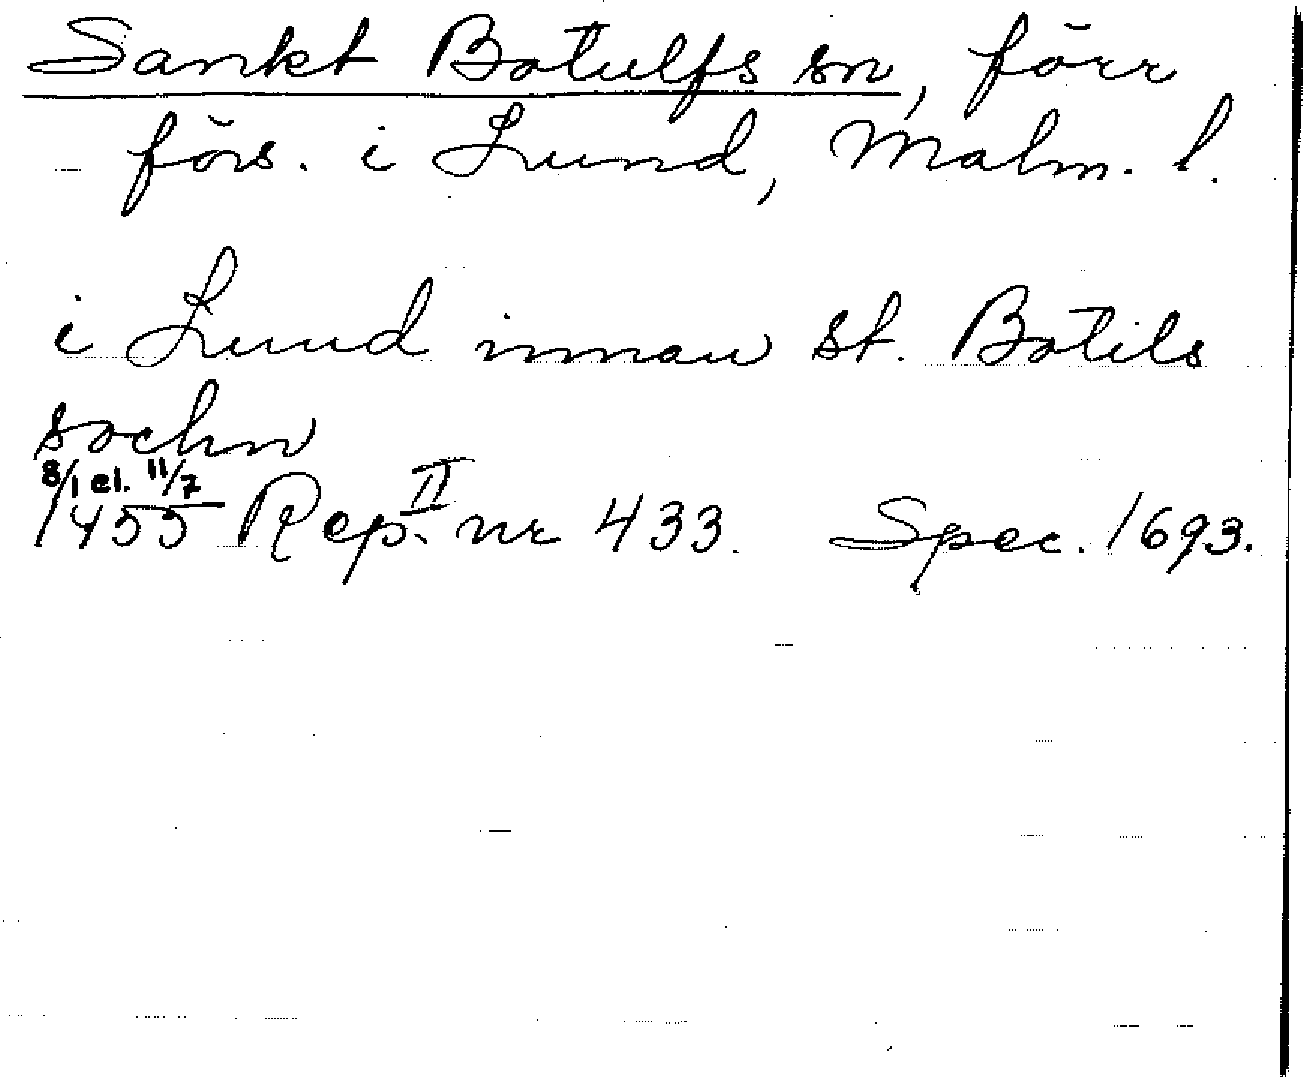 Sankt Botulfs sn, förr
förs. i Lund, Malm. l.
i Lund innan st. Botils
sochn
8/1 el. 11/7
1455 Rep. II nr 433. Spec. 1693.